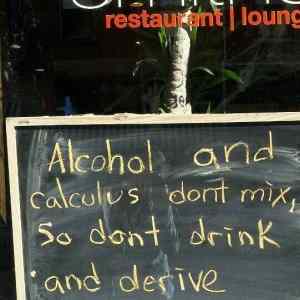 restaurant | loung
Alcohol and
calculus dont mix,
So dont drink
and derive